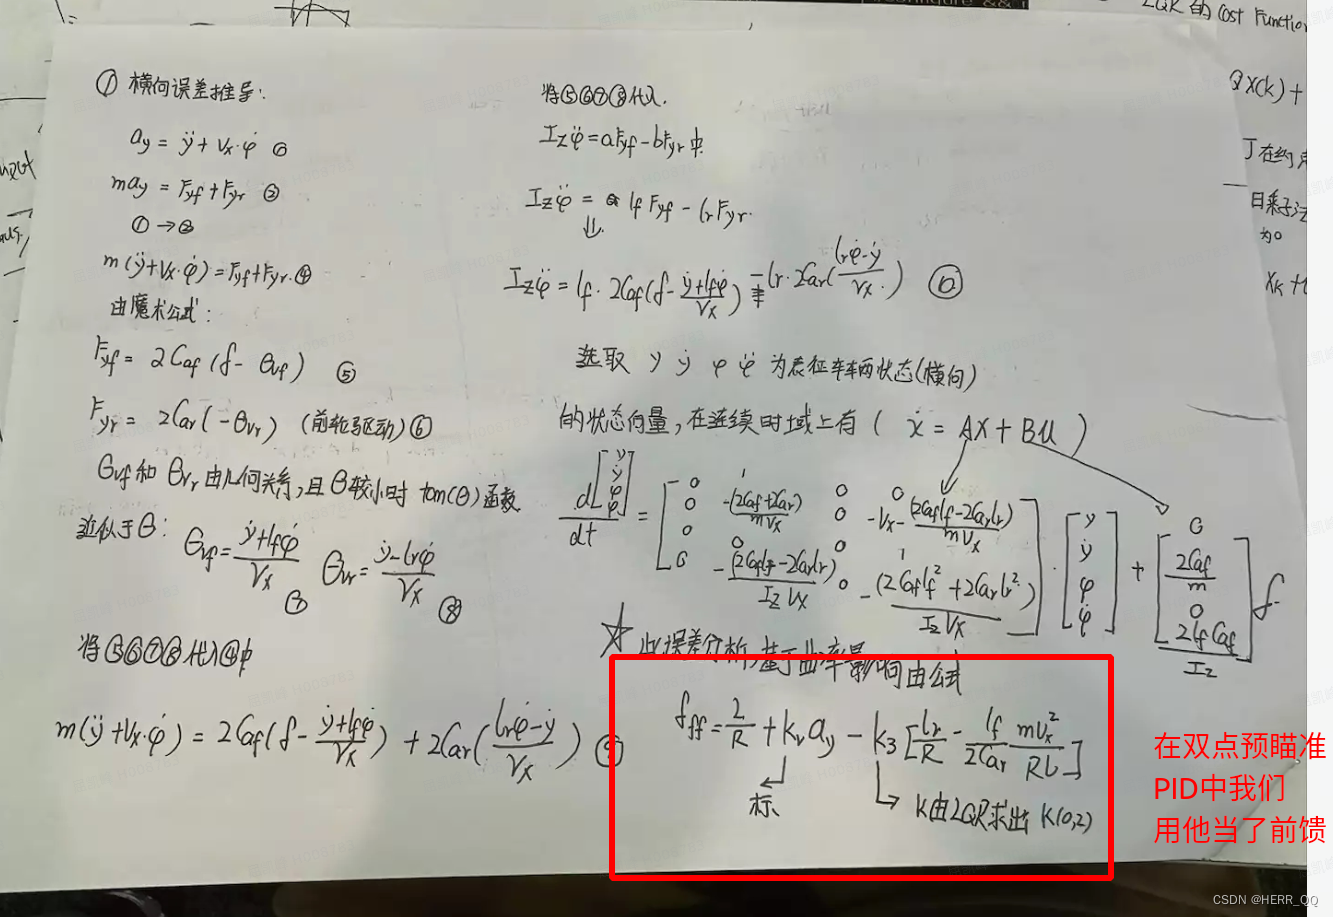 LQR 的 Cost Function
QX(k) +
① 横向误差推导:
ay = ÿ + Vx·φ̇ ①
may = Fyf + Fyr ②
① → ②
m(ÿ + Vx·φ̇) = Fyf + Fyr. ④
由魔术公式:
Fyf = 2Cαf (δ - θvf) ⑤
Fyr = 2Cαr (-θvr) (前轮驱动) ⑥
θvf 和 θvr 由几何关系, 且 θ较小时 tan(θ) 函数
近似于 θ: θvf = (ẏ + lfφ̇)/Vx ⑦ θvr = (ẏ - lrφ̇)/Vx ⑧
将⑤⑥⑦⑧代入④中
m(ÿ + Vx·φ̇) = 2Cαf(δ - (ẏ + lfφ̇)/Vx) + 2Cαr((lrφ̇ - ẏ)/Vx) ⑨
将⑤⑥⑦⑧代入.
Izφ̈ = aFyf - bFyr 中.
Izφ̈ = lf Fyf - lr Fyr.
⇓
Izφ̈ = lf · 2Cαf(δ - (ẏ + lfφ̇)/Vx) - lr · 2Cαr((lrφ̇ - ẏ)/Vx) ⑩
选取 y ẏ φ φ̈ 为表征车辆状态(横向)
的状态向量, 在连续时域上有 ( ẋ = AX + BU )
d[y ẏ φ φ̇]/dt = [
0 1 0 0
0 -(2Cαf+2Cαr)/mVx 0 -Vx-(2Cαflf-2Cαrlr)/mVx
0 0 0 1
0 -(2Cαflf-2Cαrlr)/IzVx 0 -(2Cαflf²+2Cαrlr²)/IzVx
] · [y ẏ φ φ̇] + [0 2Cαf/m 0 2lfCαf/Iz] δ
☆ 此误差分析, 基于曲率影响由公式
δff = L/R + kv ay - k3 [lr/R - lf/2Cαr mVx²/Rl]
标 K由LQR求出 K(0,2)
在双点预瞄准
PID中我们
用他当了前馈
CSDN @HERR_QQ